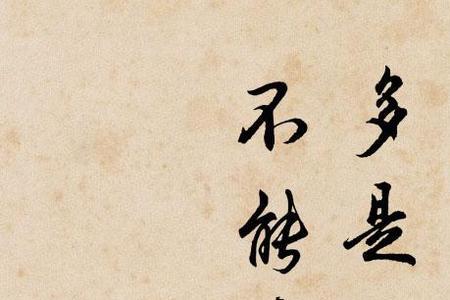 多是
不能